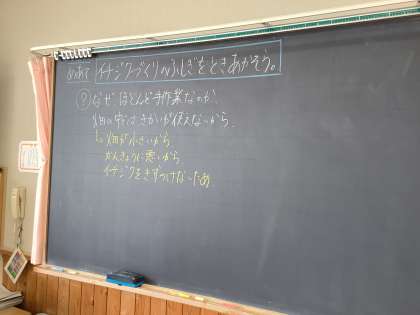 めあて イチジクづくりのふしぎをときあかそう。
? なぜ ほとんど手作業なのか。
畑の中はきかいが使えないから。
↳畑が小さいから
かんきょうに悪いから
イチジクをきずつけないため